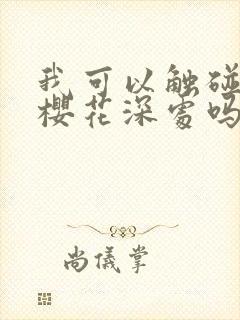 我可以触碰
樱花深处吗
尚仪掌